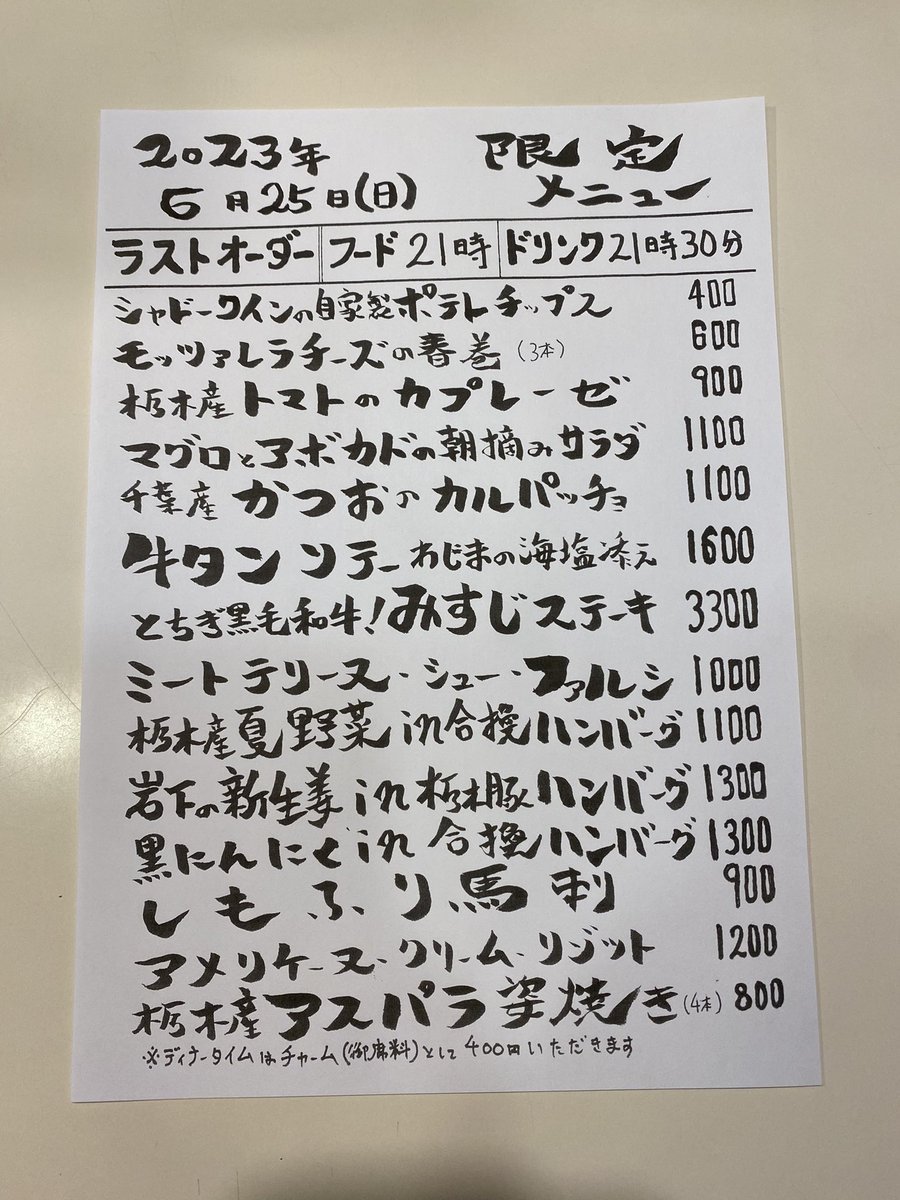 2023年 限定
6月25日(日) メニュー
ラストオーダー フード21時 ドリンク21時30分
シャドークインの自家製ポテトチップス 400
モッツァレラチーズの春巻(3本) 600
栃木産トマトのカプレーゼ 900
マグロとアボカドの朝摘みサラダ 1100
千葉産かつおのカルパッチョ 1100
牛タンソテーわじまの海塩添え 1600
とちぎ黒毛和牛!みすじステーキ 3300
ミートテリーヌ・シュー・ファルシ 1000
栃木産夏野菜in合挽ハンバーグ 1100
岩下の新生姜in栃木豚ハンバーグ 1300
黒にんにくin合挽ハンバーグ 1300
しもふり馬刺 900
アメリケーヌ・クリーム・リゾット 1200
栃木産アスパラ姿焼き(4本) 800
※ディナータイムはチャーム(御席料)として400円いただきます